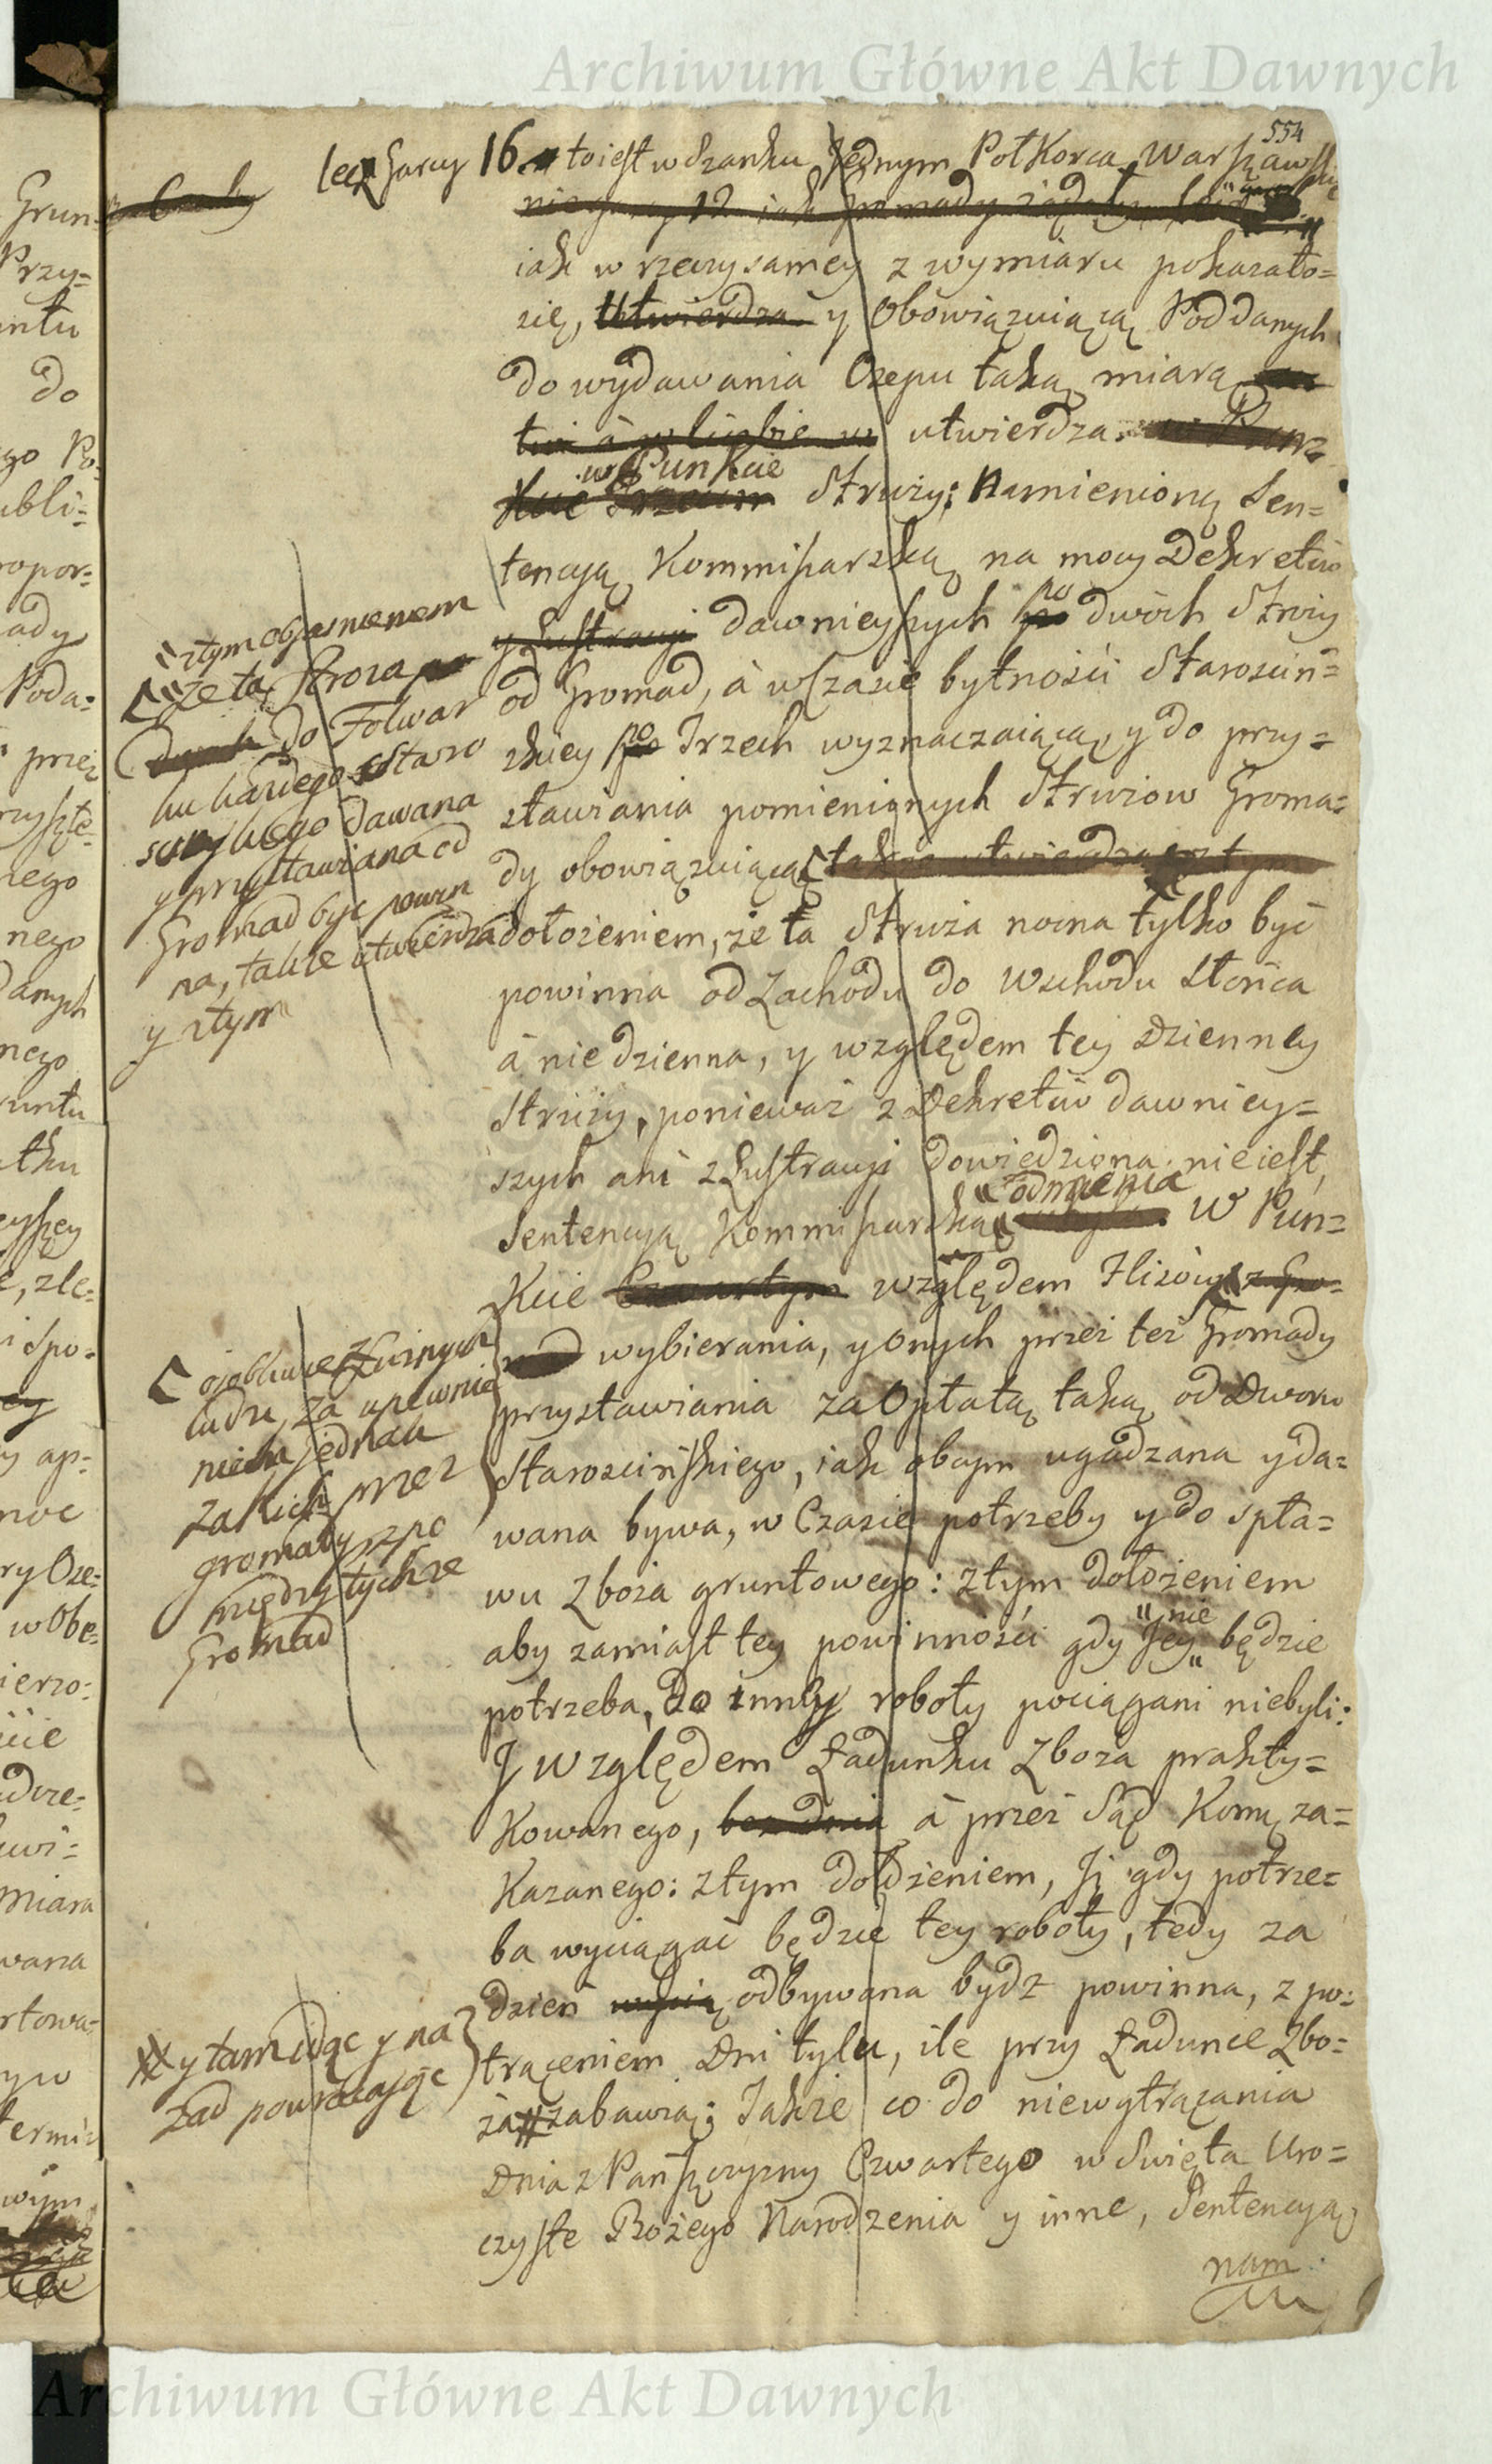 Archiwum Główne Akt Dawnych
554
lecz Garcy 16. to iest w Szanku Jednym Poł Korca Warszawsk
12 iak Gromady żądały
iak w rzeczy samey z wymiaru pokazało=
się, Utwierdza y Obowiązuiącą Poddanych
do wydawania Osepu taką miarą
w liczbie w utwierdza.
w Punkcie
Kcie Trzecim Struży: Namienioną Sen=
tencyą Kommissarską na mocy Dekretów
y Lustracyi dawnieyszych po dwóch Stróży
od Gromad, à w czasie bytności Starościń=
skiey po Trzech wyznaczaiącą y do przy=
stawiania pomienionych Stróżow Groma=
dy obowiązuiącą także utwierdza z tym
dołożeniem, że ta Struża nocna tylko być
powinna od Zachodu do Wschodu Słońca
à nie dzienna, y względem tey Dzienney
Struży, ponieważ z Dekretów dawniey=
szych ani z Lustracyi dowiedziona nie iest,
odmienia
Sentencyą Kommissarską W Pun=
Kcie Czwartym względem Flisów z Gro=
mad wybierania, y onych przez też Gromady
przystawiania za Opłatą taką od Dworu
Starościńskiego, iak obcym ugadzana y da=
wana bywa, w Czasie potrzeby y do spła=
wu Zboża gruntowego: z tym dołożeniem
nie
aby zamiast tey powinności gdy Jey będzie
potrzeba, do inney roboty pociągani niebyli:
J względem Ładunku Zboża prakty=
Kowanego, bez dnia à przez Sąd Kom̃ za=
Kazanego: z tym dołożeniem, Jż gdy potrze=
ba wyciągać będzie tey roboty, tedy za
dzień odbywana bydź powinna, z po=
trąceniem Dni tylu, ile przy Ładunce Zbo=
ża zabawią: Także co do niewytrącania
Dnia z Pańszczyzny Czwartego w Swięta Uro=
czyste Bożego Narodzenia y inne, Sentencyą
nam
z tym obiaśnieniem
że ta Stroża
do Folwar
ku każdego Staro
scinskiego dawana
y przystawiana od
Gromad być powin
na, także utwierdza
y z tym
osobliwie z luźnych
ludzi, za upewnie
niem jednak
zakich przez
gromady z po
między tychże
Gromad
y tam idąc y na
zad powracając
Grun=
Przy=
do
go Po=
ubli=
opor=
ady
Poda=
przez
nego
nego
Danych
nego
runtu
tku
i spo=
y ap=
ry Ose=
w Obe=
miara
wana
Archiwum Główne Akt Dawnych